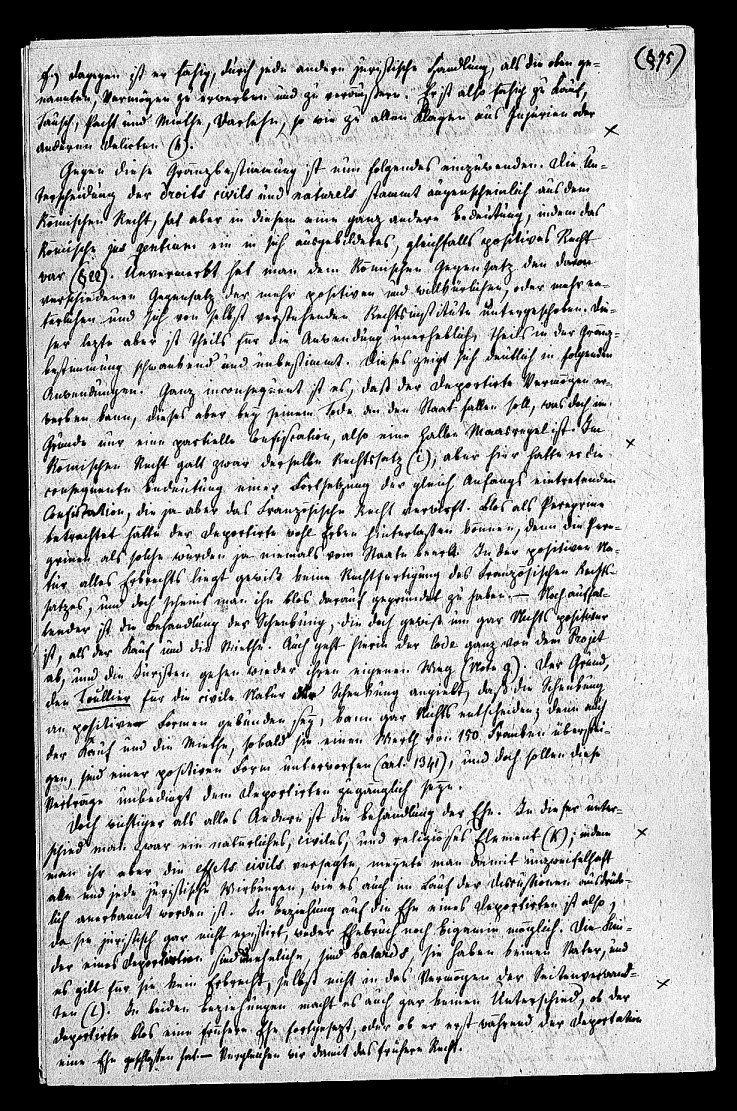 (§75)
f.) Dagegen ist er fähig, durch jede andere juristische Handlung, als die oben ge-
nannten, Vermögen zu erwerben und zu veräussern. Er ist also fähig zu Kauf,
Tausch, Pacht und Miethe, Darlehn, so wie zu allen Klagen aus Injurien oder
anderen Delicten (h).
Gegen diese Gränzbestimmung ist nun folgendes einzuwenden. Die Un-
terscheidung der droits civils und naturels stammt augenscheinlich aus dem
Römischen Recht, hat aber in diesem eine ganz andere Bedeutung, indem das
Römische jus gentium ein in sich ausgebildetes, gleichfalls positives Recht
war (§22). Unvermerkt hat man dem Römischen Gegensatz den davon
verschiedenen Gegensatz der mehr positiven und willkürlichen oder mehr na-
türlichen und sich von selbst verstehenden Rechtsinstitute untergeschoben. Die-
ser letzte aber ist theils für die Anwendung unerheblich, theils in der Gränz-
bestimmung schwankend und unbestimmt. Dieses zeigt sich deutlich in folgenden
Anwendungen. Ganz inconsequent ist es, daß der Deportirte Vermögen er-
werben kann, dieses aber bey seinem Tode an den Staat fallen soll, was doch im
Grunde nur eine partielle Confiscation, also eine halbe Maasregel ist. Im
Römischen Recht galt zwar derselbe Rechtssatz (i), aber hier hatte er die
consequente Bedeutung einer Fortsetzung der gleich Anfangs eintretenden
Confiscation, die ja aber das Französische Recht verwirft. Blos als Peregrine
betrachtet hätte der Deportirte wohl Erben hinterlassen können, denn die Pere-
grinen als solche wurden ja niemals vom Staate beerbt. In der positiven Na-
tur alles Erbrechts liegt gewiß keine Rechtfertigung des Französischen Rechts-
satzes, und doch scheint man ihn blos darauf gegründet zu haben. — Noch auffal-
lender ist die Behandlung der Schenkung, die doch gewiß um gar Nichts positiver
ist, als der Kauf und die Miethe. Auch geht hierin der Code ganz von dem Projet
ab, und die Juristen gehen wieder ihren eigenen Weg (Note g). Der Grund,
den Toullier für die civile Natur der Schenkung angiebt, daß die Schenkung
an positive Formen gebunden sey, kann gar Nichts entscheiden; denn auch
der Kauf und die Miethe, sobald sie einen Werth von 150 Franken überstei-
gen, sind einer positiven Form unterworfen (art. 1341), und doch sollen diese
Verträge unbedingt dem Deportirten zugänglich seyn.
Doch wichtiger als alles Andere ist die Behandlung der Ehe. In dieser unter-
schied man zwar ein natürliches, civiles, und religiöses Element (k); indem
man ihr aber die effets civils versagte, meynte man damit unzweifelhaft
alle und jede juristische Wirkungen, wie es auch im Lauf der Discussionen ausdrück-
lich anerkannt worden ist. In Beziehung auf die Ehe eines Deportirten ist also,
da sie juristisch gar nicht existirt, weder Ehebruch noch Bigamie möglich. Die Kin-
der eines Deportirten sind uneheliche, sind batards, sie haben keinen Vater, und
es gilt für sie kein Erbrecht, selbst nicht in das Vermögen der Seitenverwand-
ten (l). In beiden Beziehungen macht es auch gar keinen Unterschied, ob der
Deportirte blos eine frühere Ehe fortgesetzt, oder ob er erst während der Deportation
eine Ehe geschlossen hat. — Vergleichen wir damit das frühere Recht.